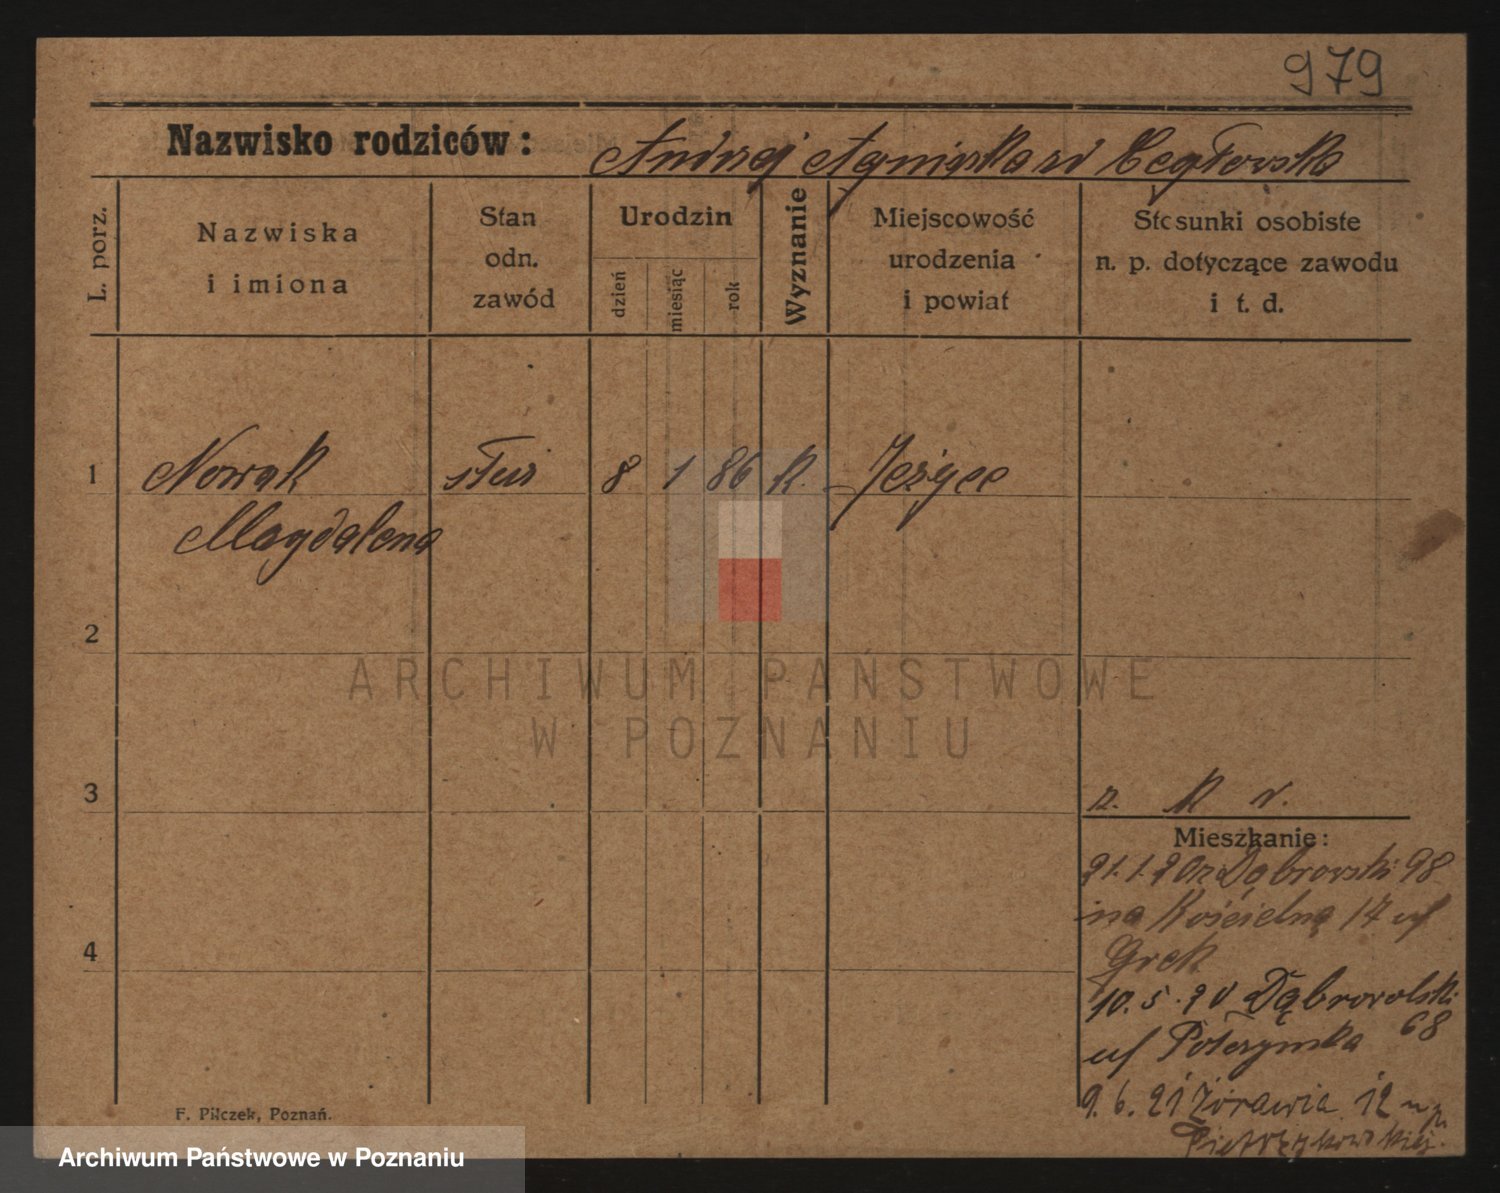 979
Nazwisko rodziców: Andrzej Agnieszka zd Cegłowska
L. porz.
Nazwiska i imiona
Stan odn. zawód
Urodzin
dzień
miesiąc
rok
Wyznanie
Miejscowość urodzenia i powiat
Stosunki osobiste n. p. dotyczące zawodu i t. d.
1 Nowak służ 8 1 86 k. Jeżyce
Magdalena
2
ARCHIWUM PAŃSTWOWE
W POZNANIU
3
Mieszkanie:
21.1.20 z Dąbrowski 98
na Kościelną 17 uf
Grek
4
10.5.20 Dąbrowski
68
uf
9.6.21 Żórawia 12
Pietrzykowskiej.
F. Pilczek, Poznań.
Archiwum Państwowe w Poznaniu